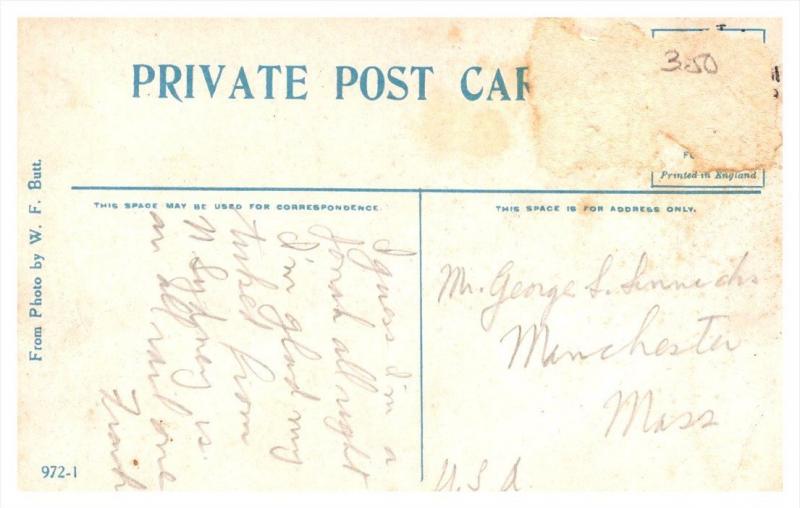 PRIVATE POST CAR
3.50
F
Printed in England
THIS SPACE MAY BE USED FOR CORRESPONDENCE.
THIS SPACE IS FOR ADDRESS ONLY.
From Photo by W. F. Butt.
I guess I'm a
Jonah all right
I'm glad my
ticket from
N Sydney is
an all rail one
Frank
Mr. George S.
Manchester
Mass
U.S.A.
972-1